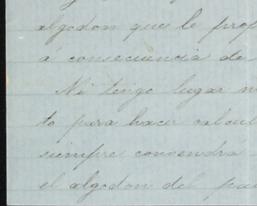 algodon que le prop
á consecuencia de
No tengo lugar n
to para hacer calcul
siempre convendrá
el algodon del pai